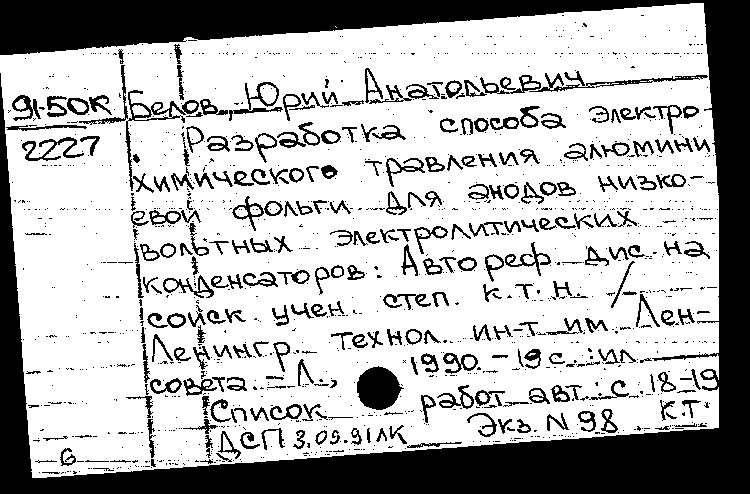 91-50К Белов, Юрий Анатольевич
2227 Разработка способа электро-
химического травления алюмини
евой фольги для анодов низко-
вольтных электролитических
конденсаторов: Автореф. дис. на
соиск. учен. степ. к.т.н. /
Ленингр. технол. ин-т им. Лен-
совета. - Л., 1990. - 19 с. : ил
Список работ авт.: с. 18-19
ДСП 3.09.91 ЛК Экз. N 98 К.Т.
6